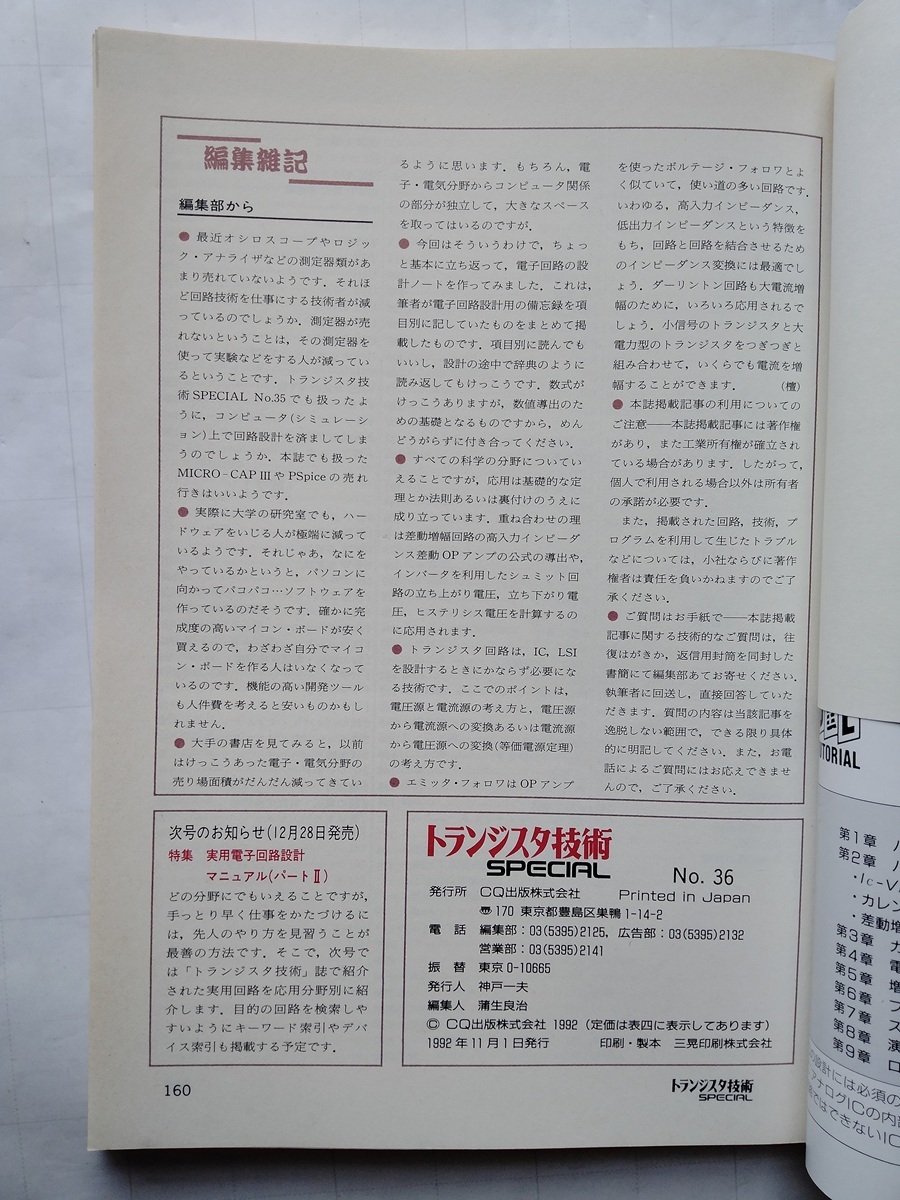 編集雑記
編集部から
● 最近オシロスコープやロジッ
ク・アナライザなどの測定器類があ
まり売れていないようです．それほ
ど回路技術を仕事にする技術者が減
っているのでしょうか．測定器が売
れないということは，その測定器を
使って実験などをする人が減ってい
るということです．トランジスタ技
術SPECIAL No.35でも扱ったよ
うに，コンピュータ(シミュレーシ
ョン)上で回路設計を済ましてしま
うのでしょうか．本誌でも扱った
MICRO-CAP IIIやPSpiceの売れ
行きはいいようです．
● 実際に大学の研究室でも，ハー
ドウェアをいじる人が極端に減って
いるようです．それじゃあ，なにを
やっているかというと，パソコンに
向かってパコパコ…ソフトウェアを
作っているのだそうです．確かに完
成度の高いマイコン・ボードが安く
買えるので，わざわざ自分でマイコ
ン・ボードを作る人はいなくなって
いるのです．機能の高い開発ツール
も人件費を考えると安いものかもし
れません．
● 大手の書店を見てみると，以前
はけっこうあった電子・電気分野の
売り場面積がだんだん減ってきてい
るように思います．もちろん，電
子・電気分野からコンピュータ関係
の部分が独立して，大きなスペース
を取ってはいるのですが．
● 今回はそういうわけで，ちょっ
と基本に立ち返って，電子回路の設
計ノートを作ってみました．これは，
筆者が電子回路設計用の備忘録を項
目別に記していたものをまとめて掲
載したものです．項目別に読んでも
いいし，設計の途中で辞典のように
読み返してもけっこうです．数式が
けっこうありますが，数値導出のた
めの基礎となるものですから，めん
どうがらずに付き合ってください．
● すべての科学の分野についてい
えることですが，応用は基礎的な定
理とか法則あるいは裏付けのうえに
成り立っています．重ね合わせの理
は差動増幅回路の高入力インピーダ
ンス差動OPアンプの公式の導出や，
インバータを利用したシュミット回
路の立ち上がり電圧，立ち下がり電
圧，ヒステリシス電圧を計算するの
に応用されます．
● トランジスタ回路は，IC，LSI
を設計するときにかならず必要にな
る技術です．ここでのポイントは，
電圧源と電流源の考え方と，電圧源
から電流源への変換あるいは電流源
から電圧源への変換(等価電源定理)
の考え方です．
● エミッタ・フォロワはOPアンプ
を使ったボルテージ・フォロワとよ
く似ていて，使い道の多い回路です．
いわゆる，高入力インピーダンス，
低出力インピーダンスという特徴を
もち，回路と回路を結合させるため
のインピーダンス変換には最適でし
ょう．ダーリントン回路も大電流増
幅のために，いろいろ応用されるで
しょう．小信号のトランジスタと大
電力型のトランジスタをつぎつぎと
組み合わせて，いくらでも電流を増
幅することができます． (檀)
● 本誌掲載記事の利用についての
ご注意――本誌掲載記事には著作権
があり，また工業所有権が確立され
ている場合があります．したがって，
個人で利用される場合以外は所有者
の承諾が必要です．
また，掲載された回路，技術，プ
ログラムを利用して生じたトラブル
などについては，小社ならびに著作
権者は責任を負いかねますのでご了
承ください．
● ご質問はお手紙で――本誌掲載
記事に関する技術的なご質問は，往
復はがきか，返信用封筒を同封した
書簡にて編集部あてお寄せください．
執筆者に回送し，直接回答していた
だきます．質問の内容は当該記事を
逸脱しない範囲で，できる限り具体
的に明記してください．また，お電
話によるご質問にはお応えできませ
んので，ご了承ください．
次号のお知らせ(12月28日発売)
特集 実用電子回路設計
マニュアル(パートⅡ)
どの分野にでもいえることですが，
手っとり早く仕事をかたづけるに
は，先人のやり方を見習うことが
最善の方法です．そこで，次号で
は「トランジスタ技術」誌で紹介
された実用回路を応用分野別に紹
介します．目的の回路を検索しや
すいようにキーワード索引やデバ
イス索引も掲載する予定です．
トランジスタ技術
SPECIAL
No. 36
発行所 CQ出版株式会社 Printed in Japan
〒170 東京都豊島区巣鴨1-14-2
電 話 編集部：03(5395)2125，広告部：03(5395)2132
営業部：03(5395)2141
振 替 東京0-10665
発行人 神戸一夫
編集人 蒲生良治
© CQ出版株式会社 1992 (定価は表四に表示してあります)
1992年11月1日発行 印刷・製本 三晃印刷株式会社
160
トランジスタ技術
SPECIAL
TORIAL
第1章
第2章
・Ic-V
・カレン
・差動増
第3章
第4章 電
第5章 増
第6章
第7章
第8章 演
第9章
設計には必須の
アナログICの内
ではできないIC